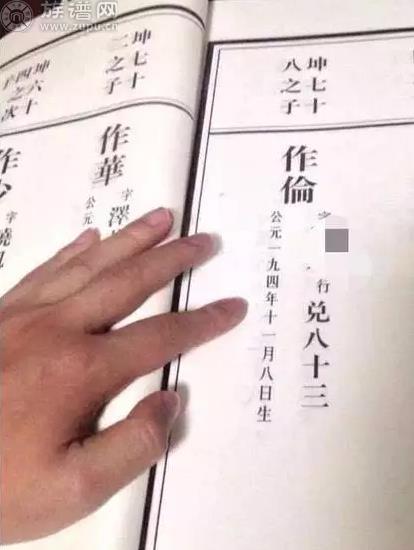 族谱网
www.zupu.cn
坤七十
八之子
作倫
字
行 兌八十三
公元一九四年十一月八日生
坤七十
二之子
作華
字澤
公元
坤六十
四之次
子
作少
字曉